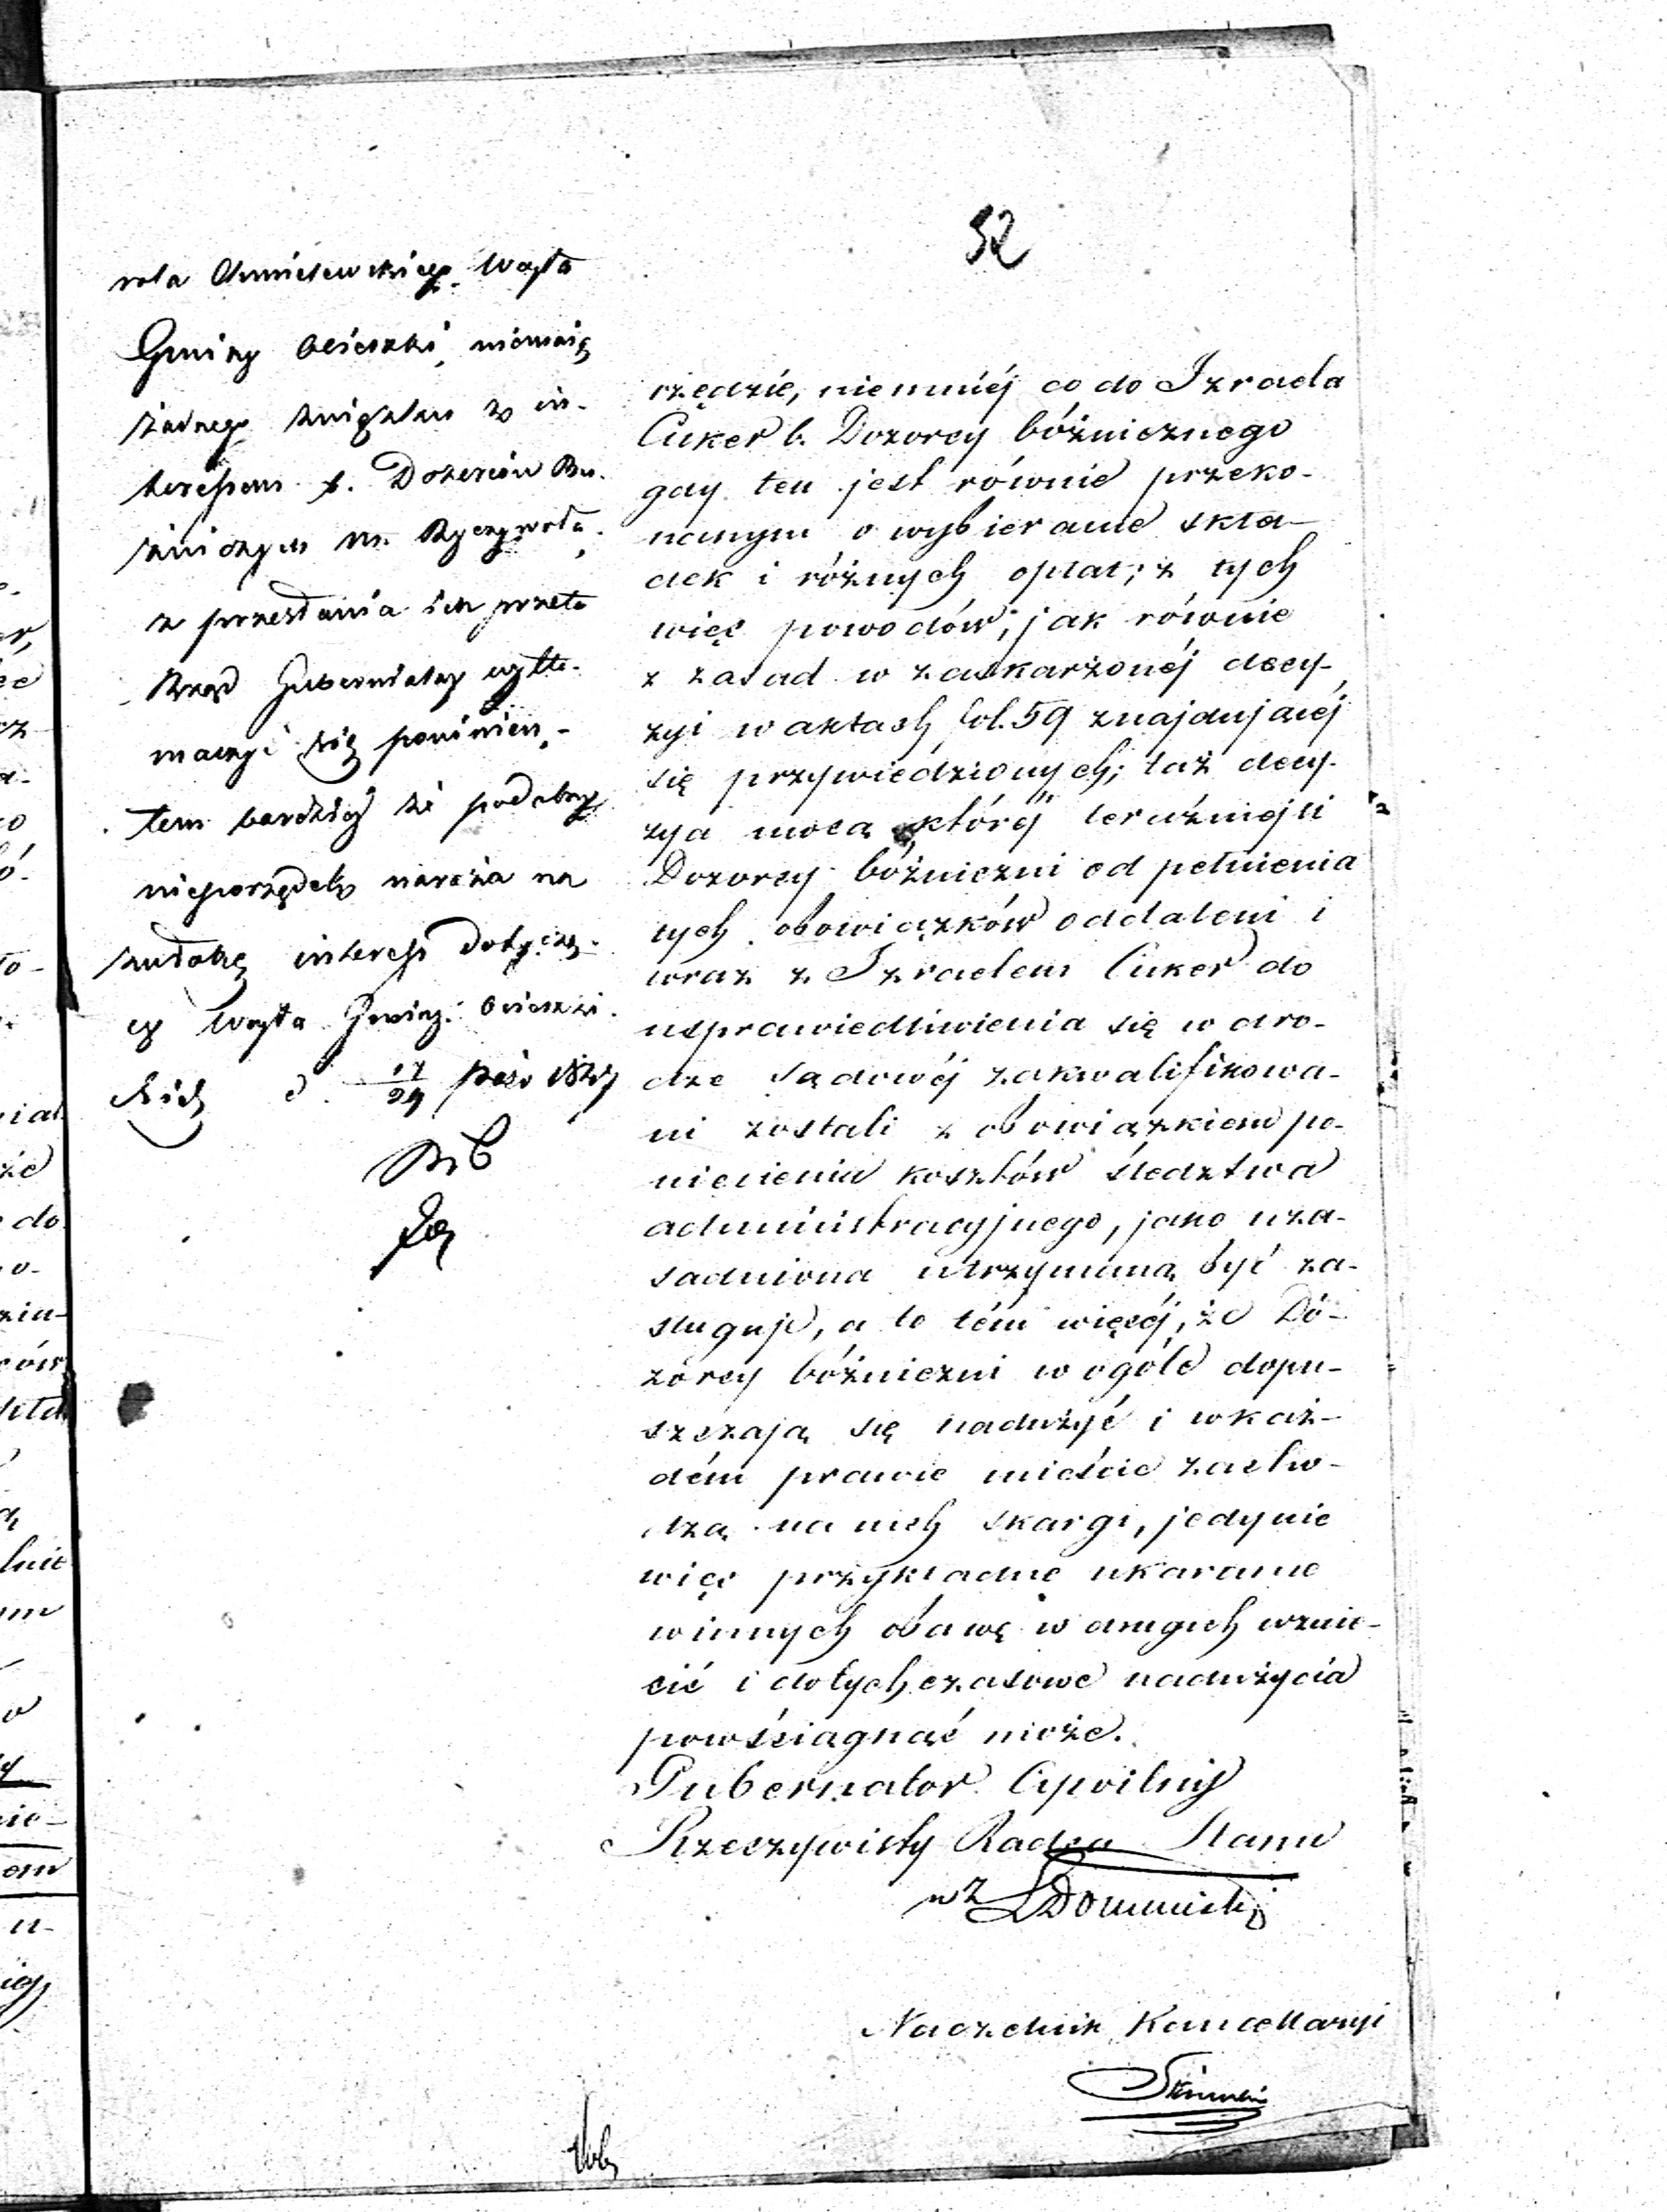 52
rola Chmielewskiego Wójta
Gminy Ocieszki niemaią
żadnego związku z in-
teressem b. Dozorców Bu-
źniczych m. Ryczywołu
z przesłania ich przeto
Rząd Gubernialny wytło-
maczyć się powinien,
tem bardziej że podobny
nieporządek naraża na
zwłokę interess dotyczą-
cy Wójta Gminy Ociesz-
d. 17/29
rzędzie, niemniéj co do Izraela
Cuker b. Dozorcy bóżnicznego
gdy ten jest równie przeko-
nanym o wybieranie skła-
dek i różnych opłat; z tych
więc powodów, jak równie
z zasad w zaskarżonéj decy-
zyi w aktach fol. 59 znajdującéj
się przywiedzionych; taż decy-
zya mocą któréj teraźniejsi
Dozorcy bóżniczni od pełnienia
tych obowiązków oddaleni i
wraz z Izraelem Cuker do
usprawiedliwienia się w dro-
dze Sądowéj zakwalifikowa-
ni zostali z obowiązkiem po-
niesienia kosztów śledztwa
administracyjnego, jako uza-
sadniona utrzymaną być za-
sługuje, a to tém więcéj, że Do-
zorcy bóżniczni w ogóle dopu-
szczają się nadużyć i w każ-
dém prawie mieście zacho-
dzą na nich skargi, jedynie
więc przykładne ukaranie
winnych obawę w drugich wznie-
cić i dotychczasowe nadużycia
powściągnąć może.
Gubernator Cywilny
Rzeczywisty Radca Stanu
wz
Naczelnik Kancellaryi